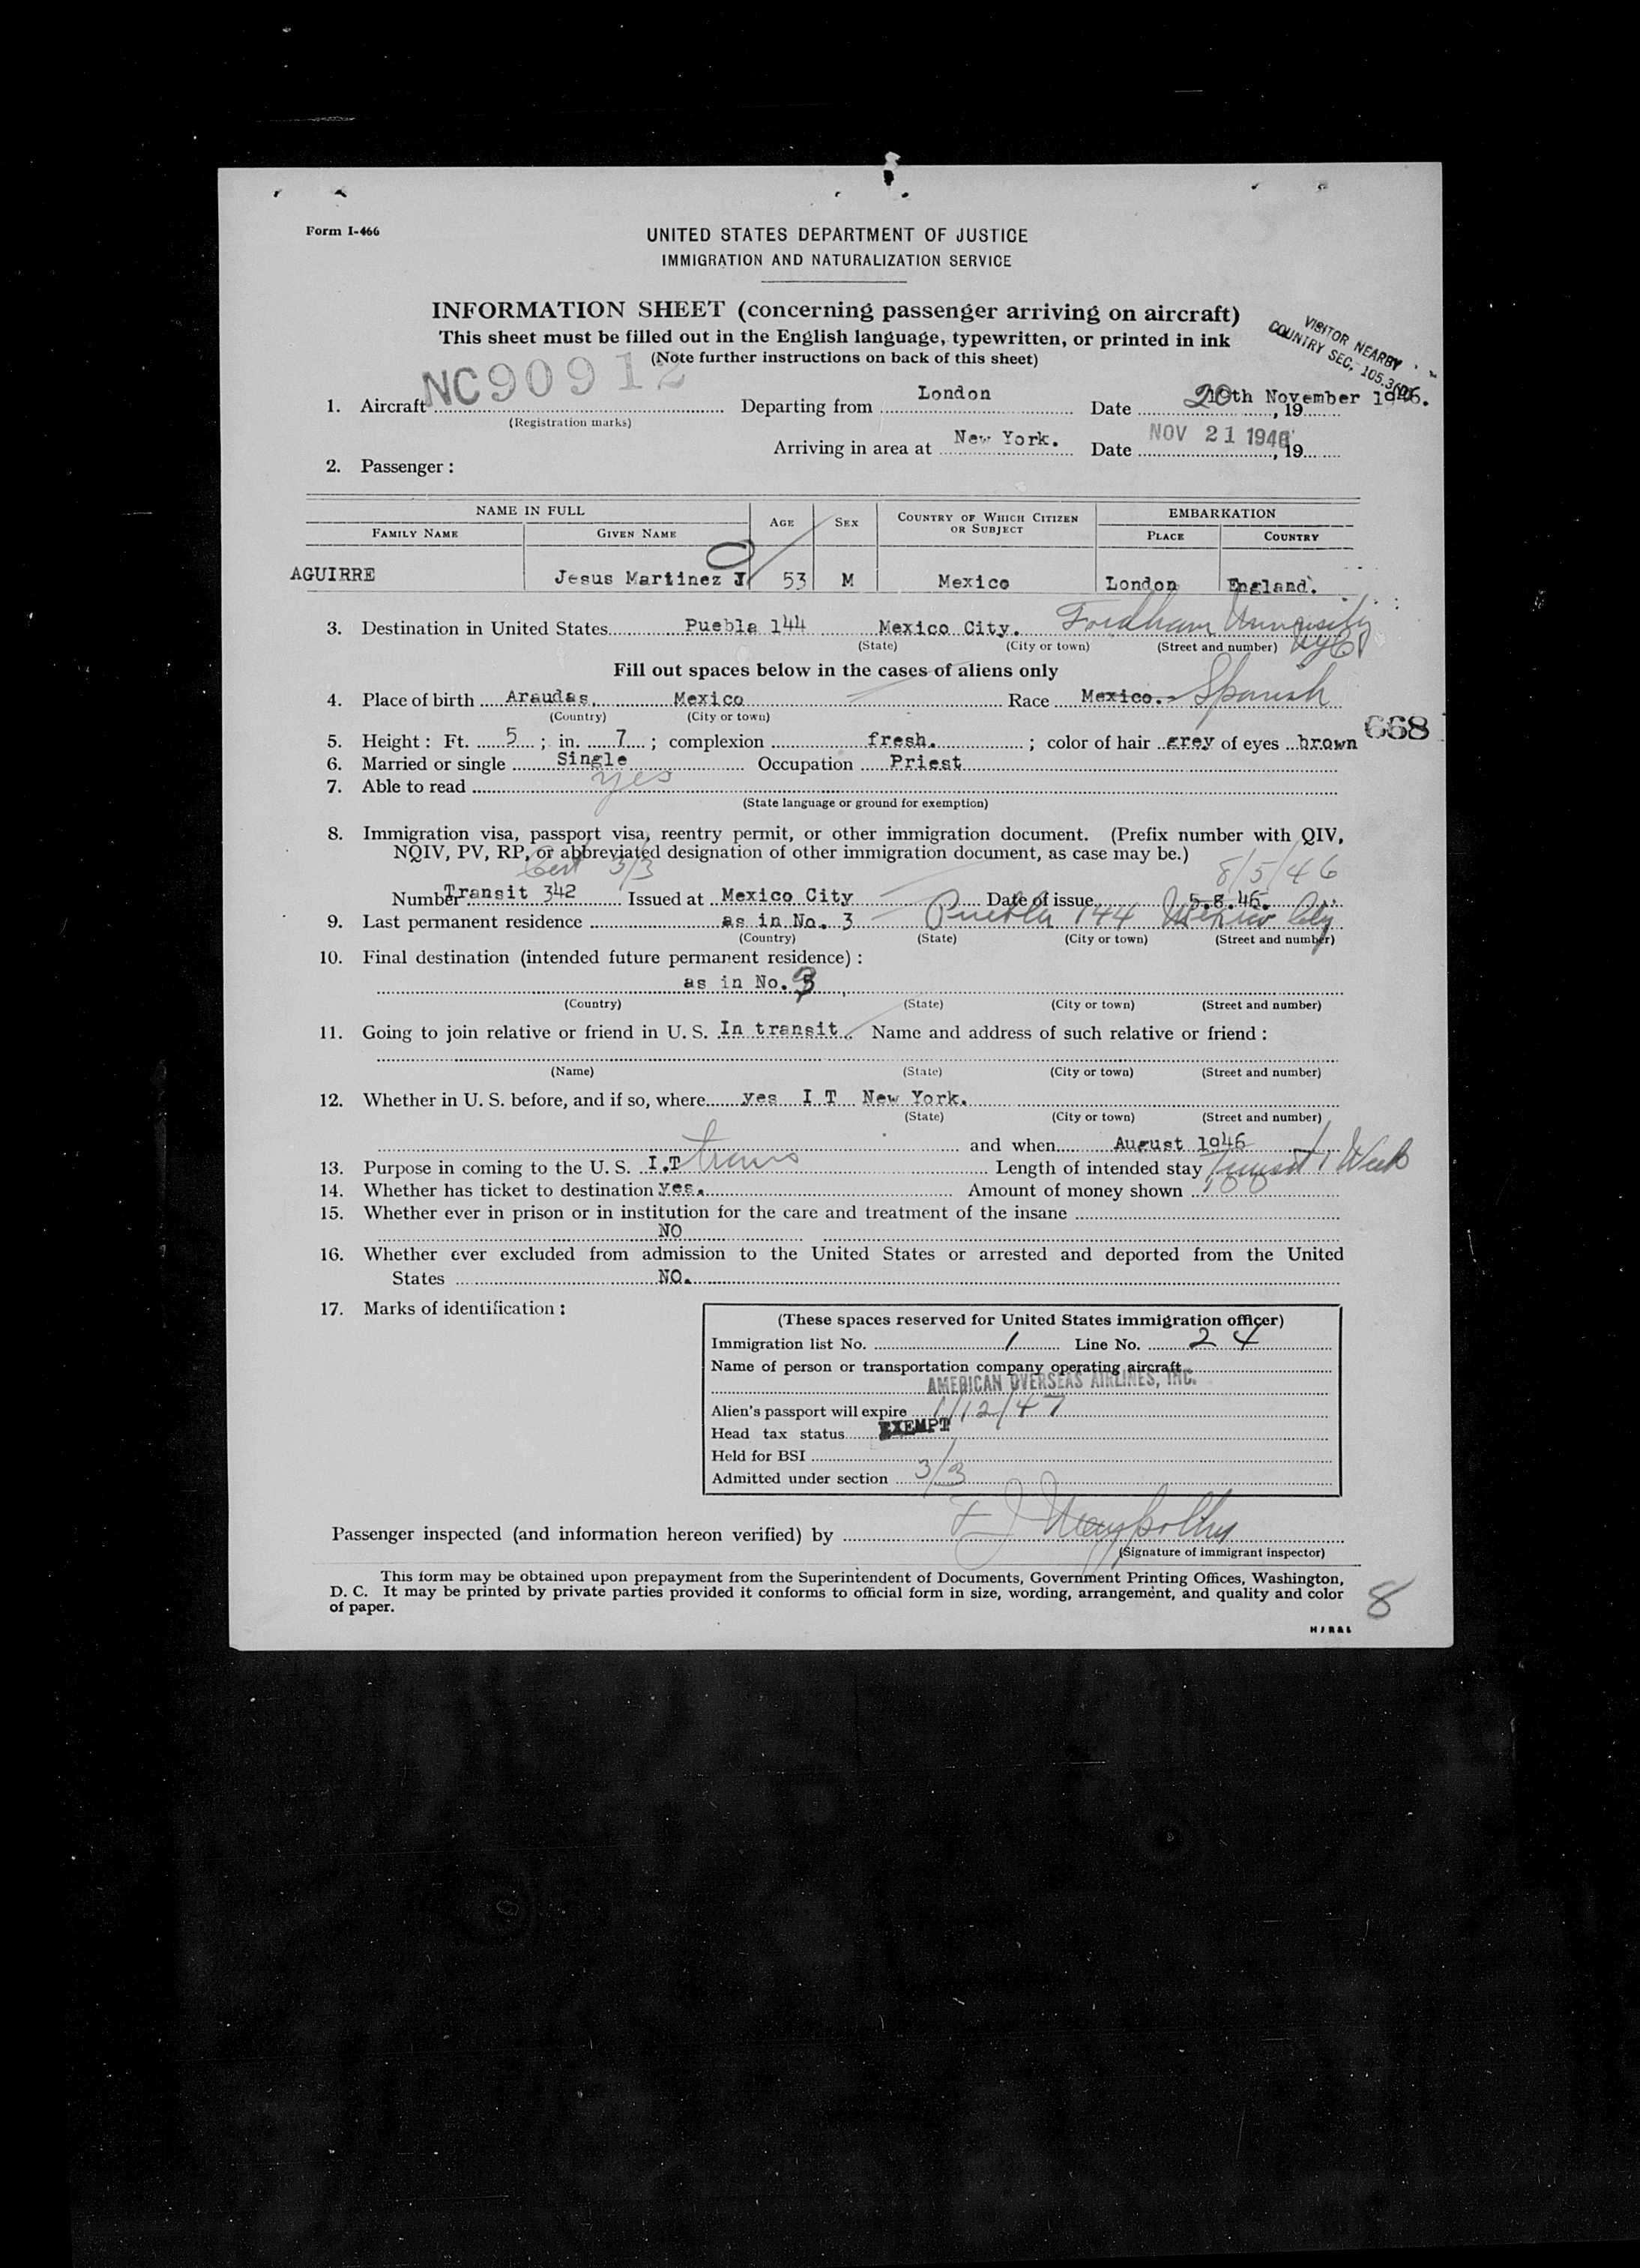 Form I-466
UNITED STATES DEPARTMENT OF JUSTICE
IMMIGRATION AND NATURALIZATION SERVICE
INFORMATION SHEET (concerning passenger arriving on aircraft)
This sheet must be filled out in the English language, typewritten, or printed in ink
(Note further instructions on back of this sheet)
VISITOR NEARBY
COUNTRY SEC. 105.3
NC90912
1. Aircraft Departing from London Date 20th November 1946. , 19
(Registration marks)
Arriving in area at New York. Date NOV 21 1946 , 19
2. Passenger :
NAME IN FULL AGE SEX COUNTRY OF WHICH CITIZEN OR SUBJECT EMBARKATION
FAMILY NAME GIVEN NAME PLACE COUNTRY
AGUIRRE Jesus Martinez J 53 M Mexico London England.
3. Destination in United States Puebla 144 Mexico City. Fordham University NYC
(State) (City or town) (Street and number)
Fill out spaces below in the cases of aliens only
4. Place of birth Araudas, Mexico Race Mexico. Spanish
(Country) (City or town)
668
5. Height : Ft. 5 ; in. 7 ; complexion fresh. ; color of hair grey of eyes brown
6. Married or single Single Occupation Priest
7. Able to read yes
(State language or ground for exemption)
8. Immigration visa, passport visa, reentry permit, or other immigration document. (Prefix number with QIV,
NQIV, PV, RP, or abbreviated designation of other immigration document, as case may be.)
Cert 3/3 8/5/46
Number Transit 342 Issued at Mexico City Date of issue 5.8.46.
9. Last permanent residence as in No. 3 Puebla 144 Mexico City
(Country) (State) (City or town) (Street and number)
10. Final destination (intended future permanent residence) :
as in No. 3
(Country) (State) (City or town) (Street and number)
11. Going to join relative or friend in U. S. In transit Name and address of such relative or friend :
(Name) (State) (City or town) (Street and number)
12. Whether in U. S. before, and if so, where yes I T New York.
(State) (City or town) (Street and number)
and when August 1946
13. Purpose in coming to the U. S. I.T trans Length of intended stay transit 1 Week
14. Whether has ticket to destination Yes. Amount of money shown
15. Whether ever in prison or in institution for the care and treatment of the insane
NO
16. Whether ever excluded from admission to the United States or arrested and deported from the United
States NO.
17. Marks of identification :
(These spaces reserved for United States immigration officer)
Immigration list No. 1 Line No. 24
Name of person or transportation company operating aircraft
AMERICAN OVERSEAS AIRLINES, INC.
Alien's passport will expire 1/12/47
Head tax status EXEMPT
Held for BSI
Admitted under section 3/3
Passenger inspected (and information hereon verified) by
(Signature of immigrant inspector)
This form may be obtained upon prepayment from the Superintendent of Documents, Government Printing Offices, Washington,
D. C. It may be printed by private parties provided it conforms to official form in size, wording, arrangement, and quality and color
of paper.
8